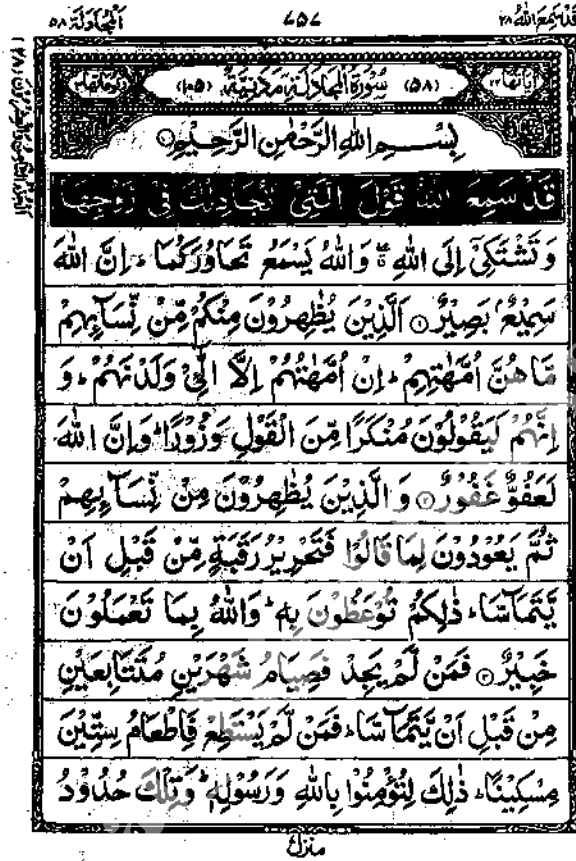 قَدْ سَمِعَ اللّٰهُ ٢٨ ٧٥٧ اَلْمُجَادَلَة ٥٨
اٰيَاتُهَا ٢٢ (٥٨) سُوْرَةُ الْمُجَادَلَةِ مَدَنِيَّةٌ (١٠٥) رُكُوْعَاتُهَا ٣
بِسْمِ اللّٰهِ الرَّحْمٰنِ الرَّحِيْمِ
قَدْ سَمِعَ اللّٰهُ قَوْلَ الَّتِيْ تُجَادِلُكَ فِيْ زَوْجِهَا
وَتَشْتَكِيْٓ اِلَى اللّٰهِ ۖ وَاللّٰهُ يَسْمَعُ تَحَاوُرَكُمَا ؕ اِنَّ اللّٰهَ
سَمِيْعٌۢ بَصِيْرٌ ۝۱ اَلَّذِيْنَ يُظٰهِرُوْنَ مِنْكُمْ مِّنْ نِّسَآئِهِمْ
مَّا هُنَّ اُمَّهٰتِهِمْ ؕ اِنْ اُمَّهٰتُهُمْ اِلَّا الّٰٓـِٔيْ وَلَدْنَهُمْ ؕ وَ
اِنَّهُمْ لَيَقُوْلُوْنَ مُنْكَرًا مِّنَ الْقَوْلِ وَزُوْرًا ؕ وَاِنَّ اللّٰهَ
لَعَفُوٌّ غَفُوْرٌ ۝۲ وَالَّذِيْنَ يُظٰهِرُوْنَ مِنْ نِّسَآئِهِمْ
ثُمَّ يَعُوْدُوْنَ لِمَا قَالُوْا فَتَحْرِيْرُ رَقَبَةٍ مِّنْ قَبْلِ اَنْ
يَّتَمَآسَّا ؕ ذٰلِكُمْ تُوْعَظُوْنَ بِهٖ ؕ وَاللّٰهُ بِمَا تَعْمَلُوْنَ
خَبِيْرٌ ۝۳ فَمَنْ لَّمْ يَجِدْ فَصِيَامُ شَهْرَيْنِ مُتَتَابِعَيْنِ
مِنْ قَبْلِ اَنْ يَّتَمَآسَّا ؕ فَمَنْ لَّمْ يَسْتَطِعْ فَاِطْعَامُ سِتِّيْنَ
مِسْكِيْنًا ؕ ذٰلِكَ لِتُؤْمِنُوْا بِاللّٰهِ وَرَسُوْلِهٖ ؕ وَتِلْكَ حُدُوْدُ